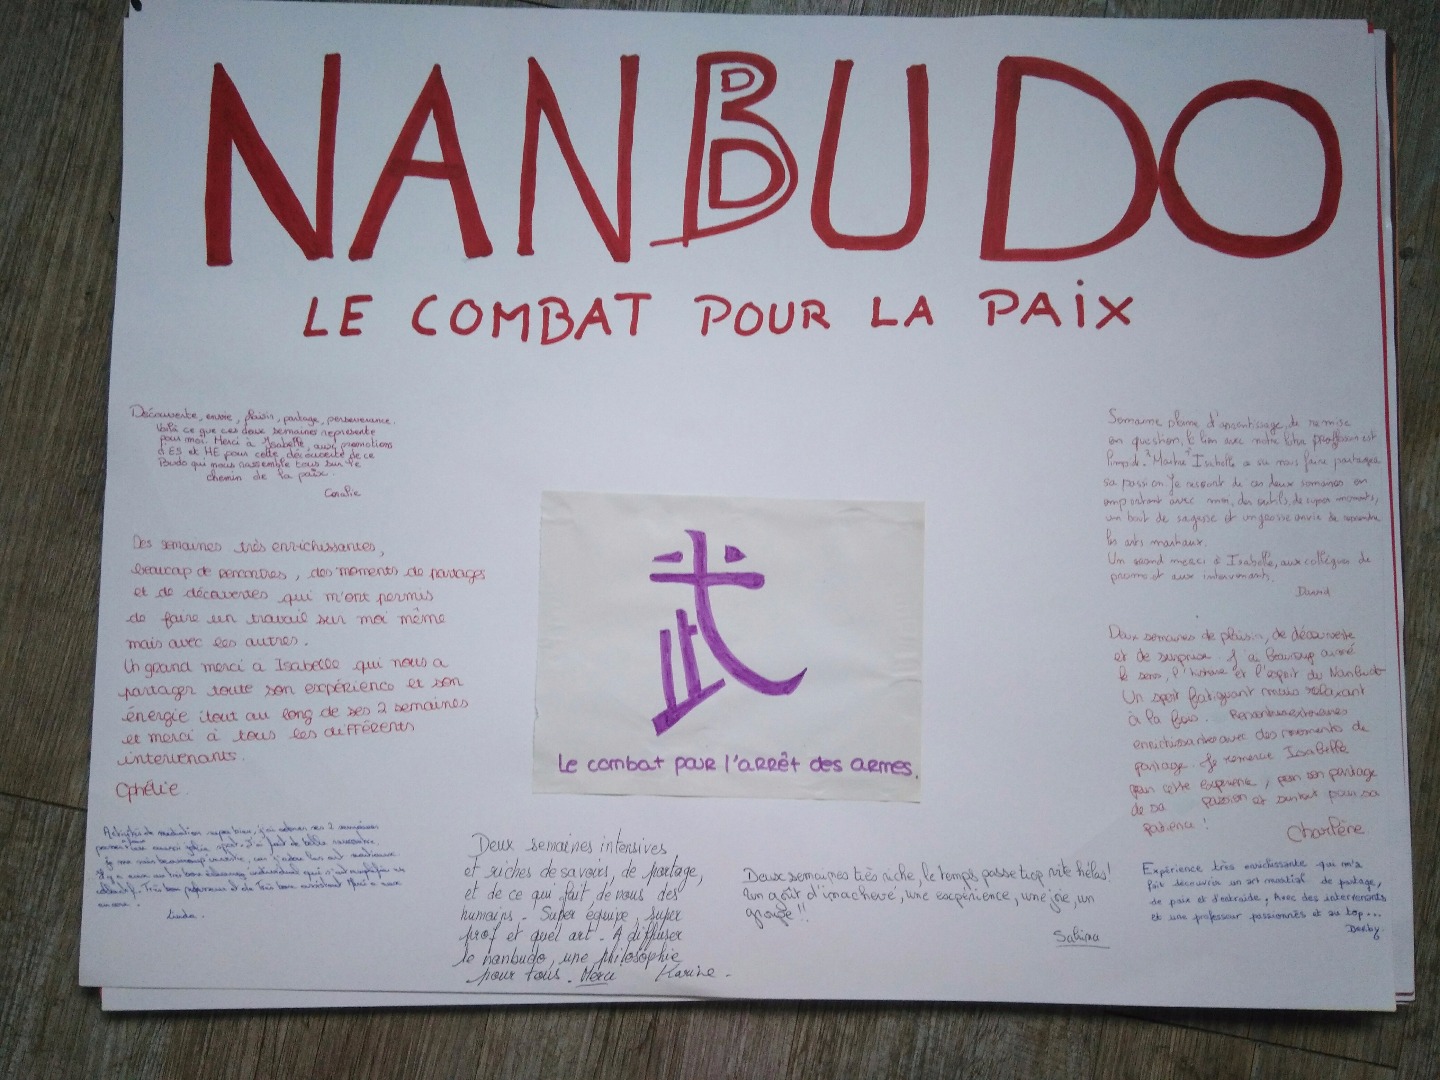 NANBUDO
LE COMBAT POUR LA PAIX
Découverte, envie, plaisir, partage, perseverance.
Voilà ce que ces deux semaines represente
pour moi. Merci à Isabelle, aux promotions
d'ES et ME pour cette découverte de ce
Budo qui nous rassemble tous sur le
chemin de la paix.
Coralie
Des semaines très enrichissantes,
beaucap de rencontres, des moments de partages
et de découvertes qui m'ont permis
de faire un travail sur moi même
mais avec les autres.
Un grand merci a Isabelle qui nous a
partager toute son expérience et son
énergie tout au long de ses 2 semaines
et merci à tous les différents
intervenants.
Ophélie
Activités de médiation super bien, j'ai adorer ces 2 semaines
J'ai fait de belle rencontre.
beaucoup car j'adore les art martiaux.
Il y a eux un très bon individuel qui
collectif. Très bon professeur et de Très bon assistant Merci a eux
encore.
Linda.
武
Le combat pour l'arrêt des armes.
Deux semaines intensives
et riches de savoirs, de partage,
et de ce qui fait de nous des
humains. Super équipe, super
prof et quel art. A diffuser
le nanbudo, une philosophie
pour tous. Merci Karine.
Deux semaines très riche, le temps passe trop vite hélas!
Un goût d'inachevé, une expérience, une joie, un
groupe!!
Sabrina
Semaine pleine d'apprentissage, de remise
en question, le lien avec notre futur profession est
limpide. "Maitre" Isabelle a su nous faire partager
sa passion. Je ressort de ces deux semaines en
emportant avec moi, des outils, de supers moments,
un bout de sagesse et une grosse envie de reprendre
les arts martiaux.
Un grand merci à Isabelle, aux collègues de
promo et aux intervenants.
David
Deux semaines de plaisir, de découverte
et de surprise. J'ai beaucoup aimé
le sens, l'histoire et l'esprit du Nanbudo
Un sport fatiguant mais relaxant
à la fois. Rencontres humaines
enrichissantes avec des moments de
partage. Je remercie Isabelle
pour cette expérience, pour son partage
de sa passion et surtout pour sa
patience!
Charlène
Expérience très enrichissante qui m'a
fait découvrir un art martial de partage,
de paix et d'entraide. Avec des intervenants
et une professeur passionnés et au top...
Derby.